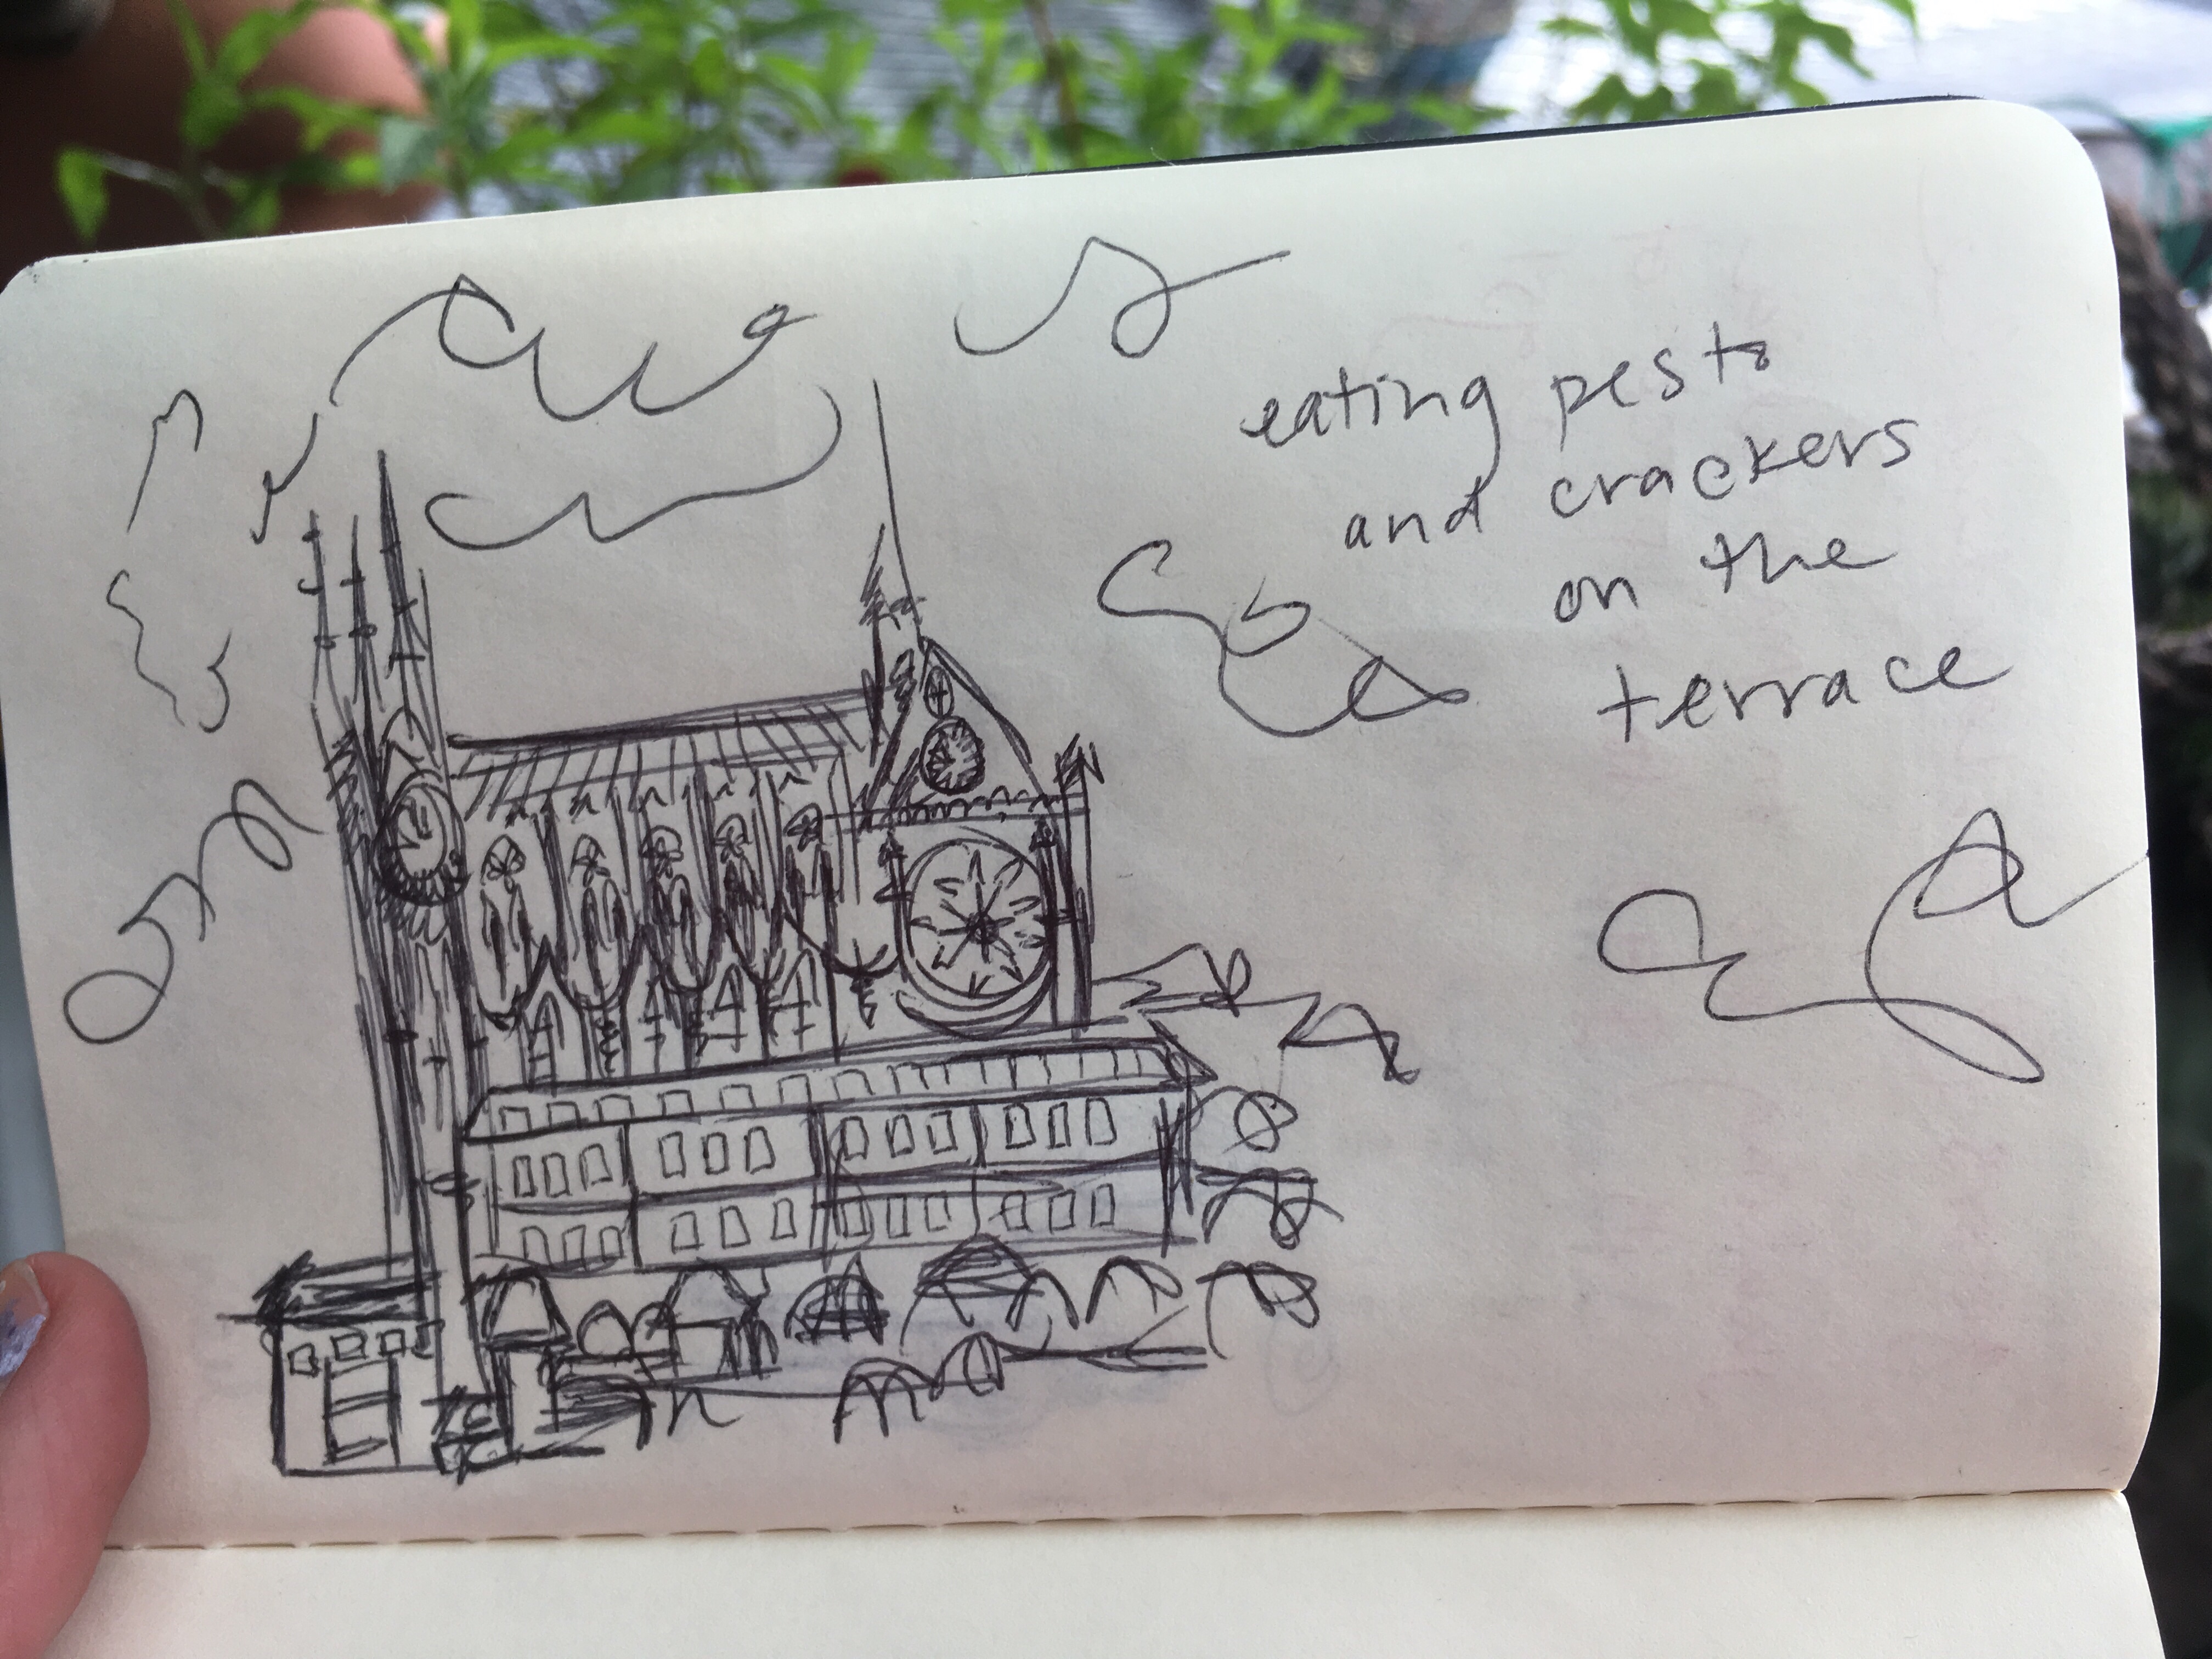 eating pesto
and crackers
on the
terrace